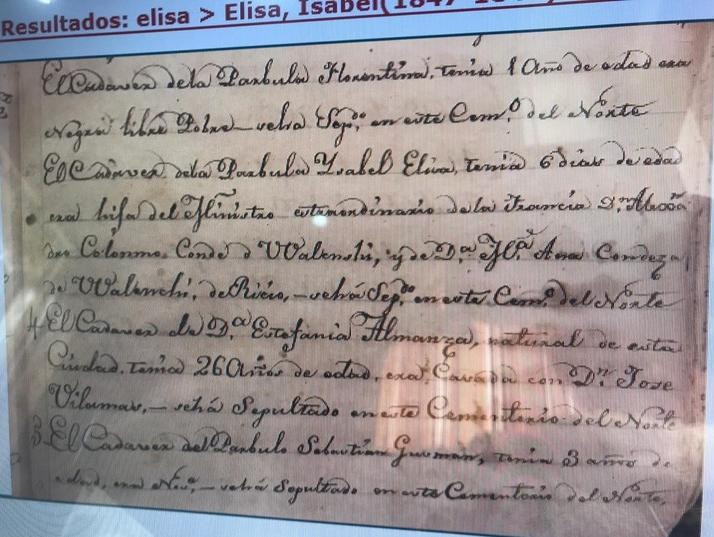 Resultados: elisa > Elisa, Isabel(1847-
El Cadaver dela Parbula Florentina, tenia 1 año de edad era
Negra libre Pobre — se ha Sepdo en este Cemo del Norte
El Cadaver dela Parbula Ysabel Elisa, tenia 6 dias de edad
era hija del Ministro estraordinario de la Francia Dn
Colonno Conde d Walenski, y de Da Ma Ana Condeza
de Walenchi, de Ricio, — se há Sepdo en este Cemo del Norte
4 El Cadaver de Da Estefania Almanza, natural de esta
Ciudad, tenia 26 Años de edad, era Casada con Dn Jose
Vilamar, — se há Sepultado en este Cementerio del Norte
3 El Cadaver del Parbulo Sebastian Gusman, tenia 3 años de
edad, era — se há Sepultado en este Cementerio del Norte,